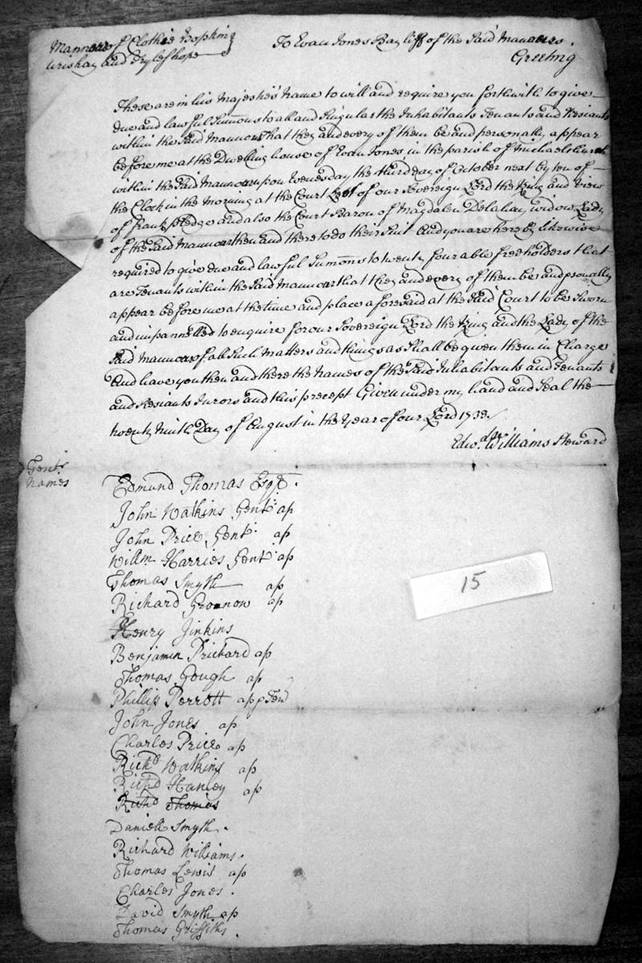 Mannors of Clothie Hopskin
Urishay and Dyleshope
To Evan Jones Bayliff of the said Mannors.
Greeting
These are in his Majesties Name to will and require you forthwith to give
due and lawful Sumons to all and Singular the Inhabitants Tenants and Resiants
within the said Mannors that they and every of them be and personally appear
before me at the Dwelling house of Evan Jones in the parish of Michaelchurch
within the said Mannors upon Wednesday the third day of October next by ten of
the Clock in the Morning at the Court Leet of our Sovereign Lord the King and View
of Frankpledge and also the Court Baron of Magdalen Delahay widow Lady
of the said Mannors then and there to do their Suit And you are hereby likewise
required to give due and lawful Summons to twenty four able freeholders that
are Tenants within the said Mannors that they and every of them be and personally
appear before me at the time and place aforesaid at the said Court to be Sworn
and impannelled to enquire for our Sovereign Lord the King and the Lady of the
said Mannors of all such Matters and things as shall be given them in Charge
And have you then and there the Names of the said Inhabitants and Tenants
and Resiants Jurors and this precept Given under my hand and Seal the
twenty ninth Day of August in the Year of our Lord 1733.
Edw. Williams Steward
Gent:
names
Edmund Thomas Esqr.
John Watkins Gent: ap
John Price Gent: ap
Willm Harries Gent: ap
Thomas Smyth ap
Richard Gronow ap
Henry Jinkins
Benjamin Prichard ap
Thomas Gough ap
Phillip Perrott ap
John Jones ap
Charles Price ap
Richd Watkins ap
Richd Hanley ap
Richd Thomas
Daniell Smyth.
Richard Williams.
Thomas Lewis ap
Charles Jones.
David Smyth ap
Thomas Griffiths.
15